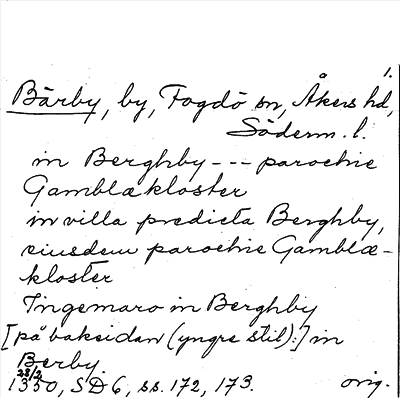 1.
Bärby, by, Fogdö sn, Åkers hd,
Söderm. l.
in Berghby --- parochie
Gamblækloster
in villa predicta Berghby,
eiusdem parochie Gamblæ-
kloster
Ingemaro in Berghby
[på baksidan (yngre stil):] in
Berby.
28/2
1350, SD 6, ss. 172, 173. orig.